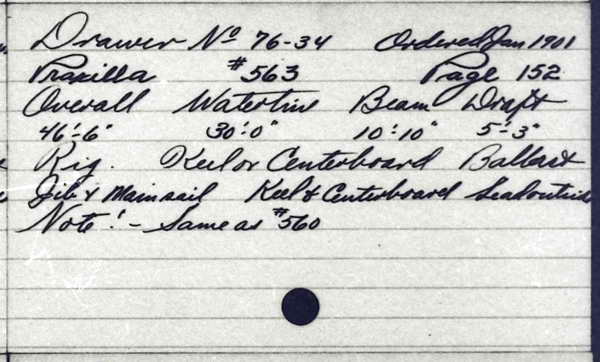 Drawer No 76-34 Ordered Jan 1901
Praxilla #563 Page 152
Overall Waterline Beam Draft
46'-6" 30'-0" 10'-10" 5'-3"
Rig. Keel or Centerboard Ballast
Jib & Mainsail Keel & Centerboard Lead outside
Note! - Same as #560